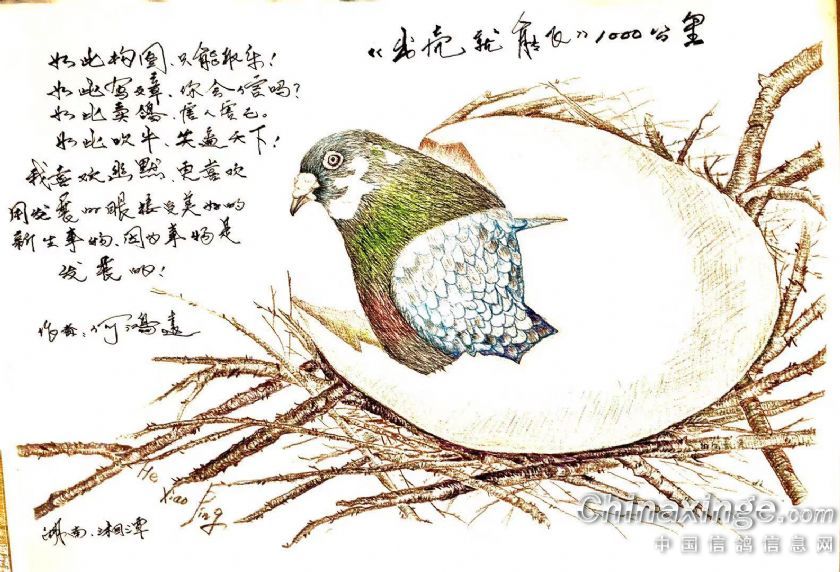 《出壳就能飞》1000公里
如此构图、只能取乐！
如此写文章、你会信吗？
如此卖鸽、害人害己。
如此吹牛、笑逼天下！
我喜欢幽默、更喜欢
用发展的眼接受美好的
新生事物、因为事物是
发展的！
作者：何鸿远
He
Xiao
Ping
湖南、湘潭
Chinaxinge.com
中国信鸽信息网